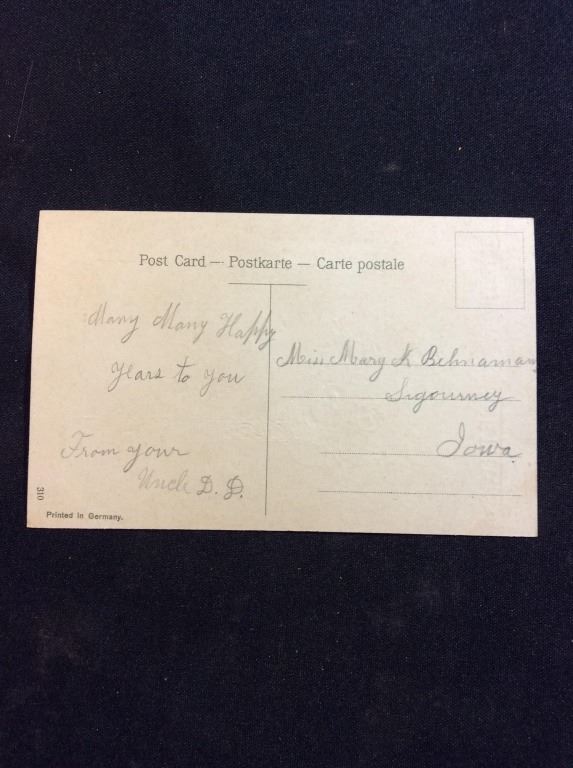 Post Card — Postkarte — Carte postale
Many Many Happy
Years to you
From your
Uncle D. D.
Miss Mary K Behnaman
Sigourney
Iowa.
310
Printed in Germany.